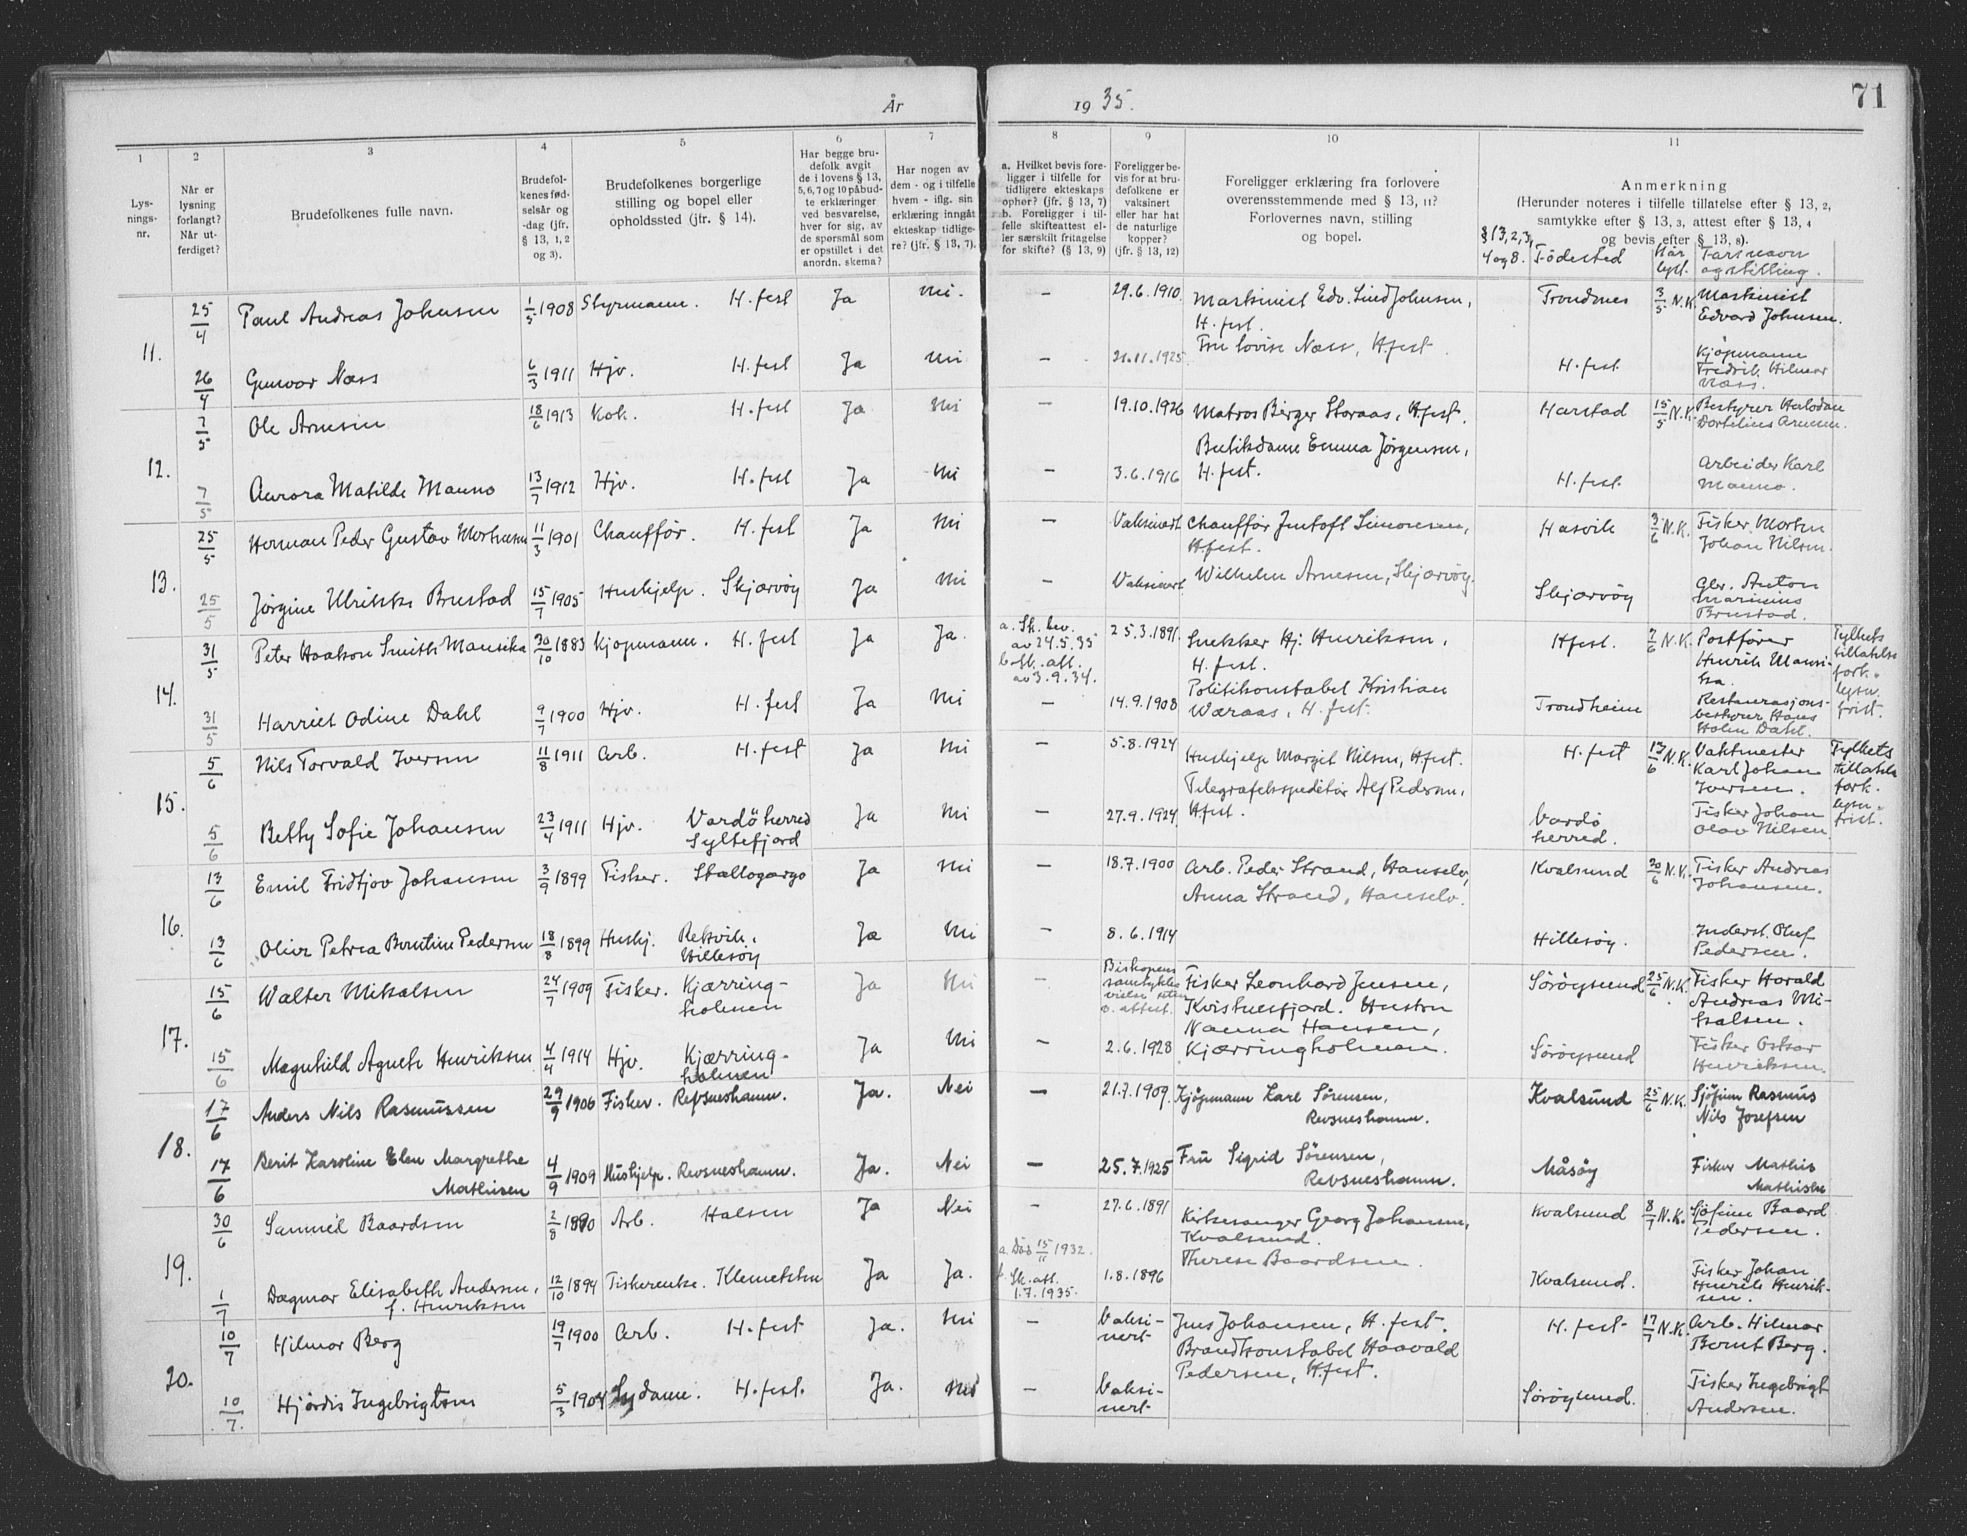 År 1935.
71
1 2 3 4 5 6 7 8 9 10 11
Lys-
nings-
nr.
Når er
lysning
forlangt?
Når ut-
ferdiget?
Brudefolkenes fulle navn.
Brudefol-
kenes fød-
selsår og
-dag (jfr.
§ 13, 1, 2
og 3).
Brudefolkenes borgerlige
stilling og bopel eller
opholdssted (jfr. § 14).
Har begge bru-
defolk avgit
de i lovens § 13,
5, 6, 7 og 10 påbud-
te erklæringer
ved besvarelse,
hver for sig, av
de spørsmål som
er opstillet i det
anordn. skema?
Har nogen av
dem - og i tilfelle
hvem - iflg. sin
erklæring inngått
ekteskap tidlige-
re? (jfr. § 13, 7).
a. Hvilket bevis fore-
ligger i tilfelle for
tidligere ekteskaps
ophør? (jfr. § 13, 7)
b. Foreligger i til-
felle skifteattest el-
ler særskilt fritagelse
for skifte? (§ 13, 9)
Foreligger be-
vis for at bru-
defolkene er
vaksinert
eller har hat
de naturlige
kopper?
(jfr. § 13, 12)
Foreligger erklæring fra forlovere
overensstemmende med § 13, 11?
Forlovernes navn, stilling
og bopel.
Anmerkning
(Herunder noteres i tilfelle tillatelse efter § 13, 2,
samtykke efter § 13, 3, attest efter § 13, 4
og bevis efter § 13, 8).
§ 13, 2, 3,
4 og 8. Fødested Når lyst. Fars navn
og stilling.
11. 25/4 Paul Andreas Johnsen 1/5 1908 Styrmann. H.fest Ja Nei. — 29.6.1910. Maskinist Edv. Lind Johnsen, Trondnes 3/5 N.K. Maskinist
H.fest. Edvard Johnsen.
Fru Lovise Næss, H.fest
26/4 Gunvor Næss 6/3 1911 Hjv. H.fest Ja Nei — 21.11.1925 H.fest. Kjøpmann
Fredrik Hilmar
Næss.
12. 7/5 Ole Arnesen 18/6 1913 Kok. H.fest Ja Nei — 19.10.1926 Matros Birger Storaas, H.fest. Harstad 15/5 N.K. Bestyrer
Arnesen.
Butikdame Emma Jørgensen,
7/5 Aurora Matilde Manno 13/7 1912 Hjv. H.fest Ja Nei — 3.6.1916 H.fest. H.fest. Arbeider Karl
Manno.
13. 25/5 Herman Peder Gustav Mortensen 11/3 1901 Chauffør. H.fest Ja Nei — Vaksinert Chauffør Simonsen, Hasvik 3/6 N.K. Fisker Morten
H.fest. Johan Nilsen.
25/5 Jørgine Ulrikke Brustad 15/7 1905 Hushjelp. Skjærvøy Ja Nei — Vaksinert Wilhelm Arnesen, Skjærvøy. Skjærvøy Gbr. Anton
Marinius
Brustad.
14. 31/5 Peter Haakon Smith Mansika 30/10 1883 Kjøpmann. H.fest Ja Ja. a. Sk. bev. 25.3.1891. Snekker Hj. Henriksen, H.fest. 7/6 N.K. Postfører Fylkets
av 24.5.35 H.fest. Henrik Mansi- tillatelse
b. Sk. att. ka. fork.
av 3.9.34. lysn.
31/5 Harriet Odine Dahl 9/7 1900 Hjv. H.fest Ja Nei — 14.9.1908 Politikonstabel Kristian Trondheim Restaurasjons- frist.
Wæraas, H.fest. bestyrer Hans
Holm Dahl.
15. 5/6 Nils Torvald Iversen 11/8 1911 Arb. H.fest Ja Nei — 5.8.1924 Hushjelp Margit Nilsen, H.fest. H.fest 13/6 N.K. Vaktmester Fylkets
Karl Johan tillatelse
Iversen. fork.
5/6 Betty Sofie Johansen 23/4 1911 Hjv. Vardöherred Ja Nei — 27.9.1924 Telegrafekspeditør Alf Pedersen, Vardö Fisker Johan lysn.
Syltefjord H.fest. herred. Olav Nilsen. frist.
16. 13/6 Emil Fridtjov Johansen 3/9 1899 Fisker. Stallogargo Ja Nei — 18.7.1900 Arb. Peder Strand, Hanselv, Kvalsund 20/6 N.K. Fisker Andreas
Anna Strand, Hanselv. Johansen.
13/6 Oliva Petrea Berntine Pedersen 18/8 1899 Hushj. Rekvik, Ja Nei — 8.6.1914 Hillesøy. Inderst. Oluf
Hillesøy Pedersen.
17. 15/6 Walter Mikalsen 24/7 1909 Fisker. Kjærring- Ja Nei — Biskopens Fisker Leonhard Jensen, Sørøysund 25/6 N.K. Fisker Harald
holmen samtykke Kvistnesfjord. Hustru Andreas Mi-
vielse uten Nanna Hansen, kalsen.
v. attest.
15/6 Magnhild Agnete Henriksen 4/4 1914 Hjv. Kjærring- Ja Nei — 2.6.1928 Kjærringholmen. Sørøysund Fisker Oskar
holmen Henriksen.
18. 17/6 Anders Nils Rasmussen 29/9 1906 Fisker. Revsneshamn. Ja. Nei — 21.7.1909. Kjøpmann Karl Sørensen, Kvalsund 25/6 N.K. Sjöfinn Rasmus
Revsneshamn. Nils Josefsen
17/6 Berit Karoline Elen Margrethe 4/9 1909 Hushjelp. Revsneshamn. Ja. Nei — 25.7.1925 Fru Sigrid Sørensen, Måsöy Fisker Mathis
Mathisen Revsneshamn. Mathisen
19. 30/6 Samuel Baardsen 2/8 1890 Arb. Halsen Ja Nei — 27.6.1891 Kirkesanger Georg Johansen, Kvalsund 8/7 N.K. Sjøfinn Baard
Kvalsund. Pedersen.
a. Död 15/11 1932. Therese Baardsen.
1/7 Dagmar Elisabeth Andersen, 12/10 1894 Fiskerenke. Klemetsten Ja Ja. b. Sk. att. 1.8.1896 Kvalsund. Fisker Johan
f. Henriksen 1.7.1935. Henrik Henrik-
sen.
20. 10/7 Hilmar Berg 19/7 1900 Arb. H.fest Ja. Nei — Vaksi- Jens Johansen, H.fest. H.fest 17/7 N.K. Arb. Hilmar
nert Brandkonstabel Haavald Bernt Berg.
Pedersen, H.fest.
10/7 Hjördis Ingebrigtsen 5/3 1904 Sydame. H.fest. Ja. Nei — Vaksi- Sørøysund. Fisker Ingebrigt
nert Andersen.